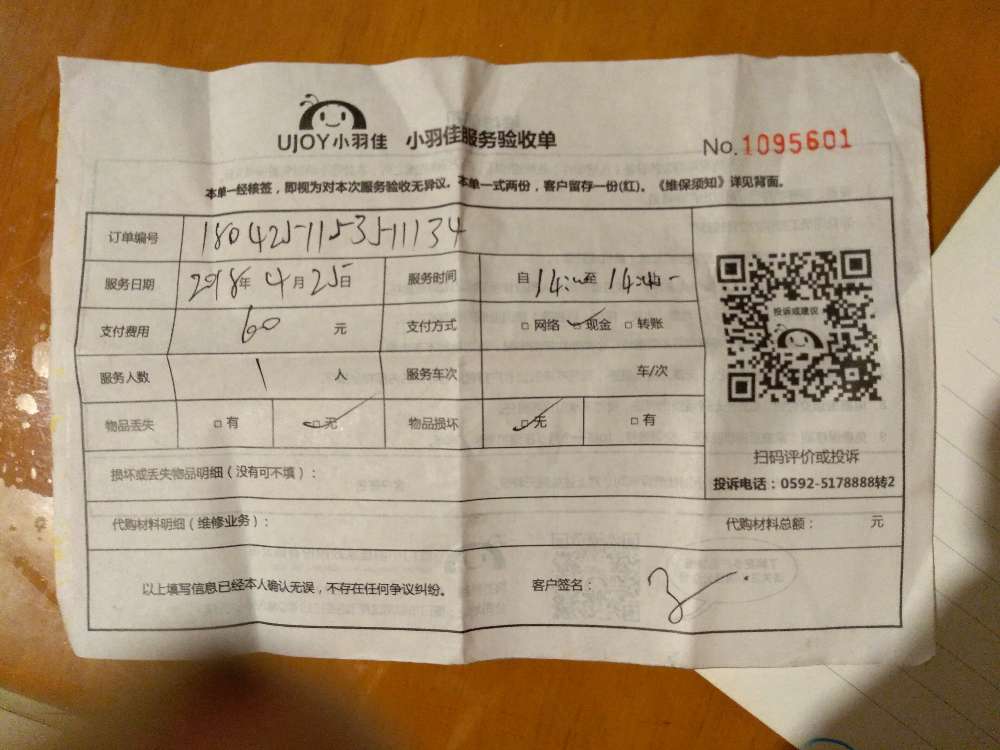 UJOY小羽佳 小羽佳服务验收单 No.1095601
本单一经核签，即视为对本次服务验收无异议。本单一式两份，客户留存一份(红)。《维保须知》详见背面。
订单编号 180425-11535-11134
服务日期 2018年4月25日 服务时间 自14: 至14:
支付费用 60 元 支付方式 □网络 □现金 □转账
服务人数 1 人 服务车次 车/次
物品丢失 □有 □无 物品损坏 □无 □有
投诉或建议
扫码评价或投诉
投诉电话：0592-5178888转2
损坏或丢失物品明细（没有可不填）：
代购材料明细（维修业务）： 代购材料总额： 元
以上填写信息已经本人确认无误，不存在任何争议纠纷。 客户签名：